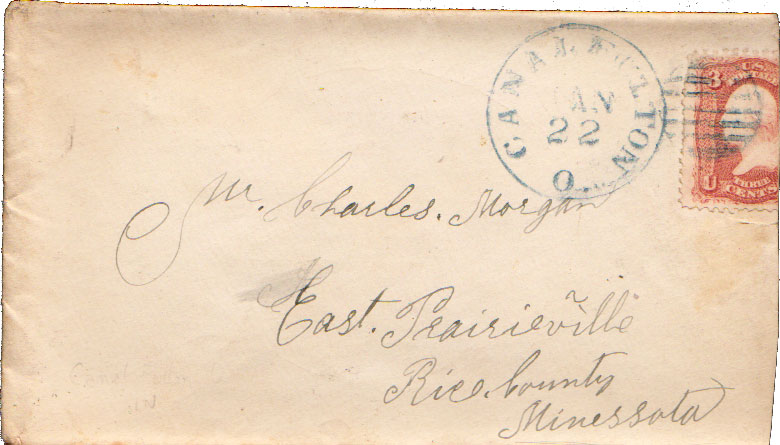 CANAL FULTON O.
JAN
22
3 U.S. POSTAGE
U THREE CENTS
Mr. Charles. Morgan
East. Prairieville
Rice. County
Minessota